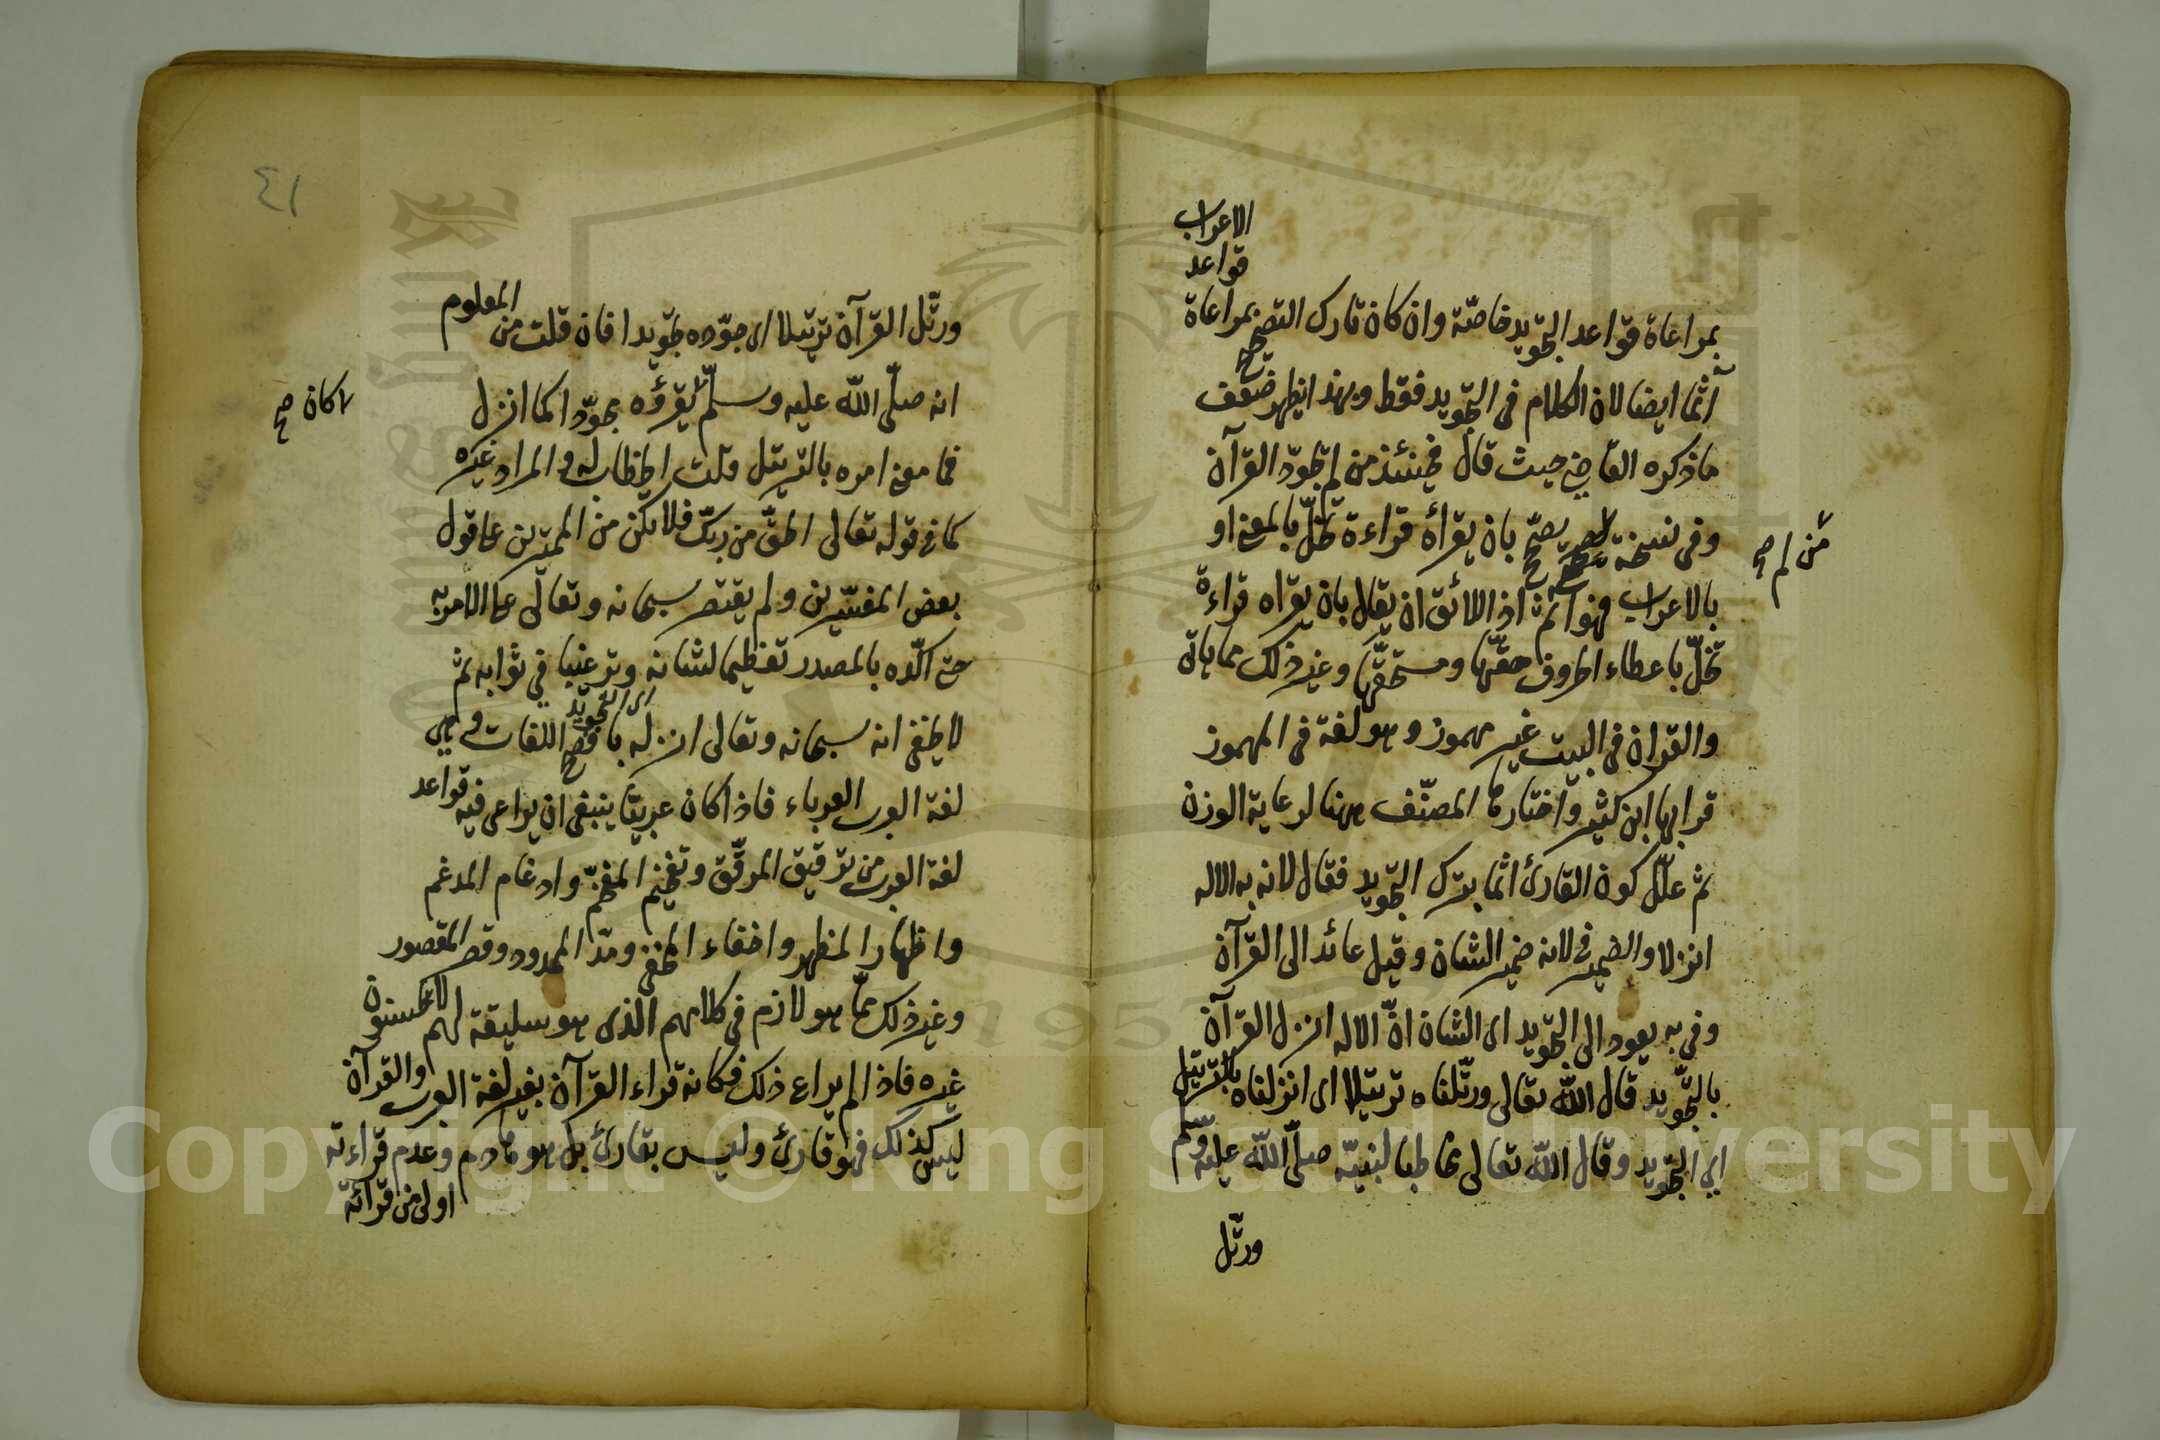 الاعراب
قواعد
بمراعاة قواعد التجويد خاصّة وان كان تارك التصحيح بمراعاة
آثما ايضا لان الكلام فى التجويد فقط وبهذا يظهر ضعف
ما ذكره القاضى حيث قال فحينئذ من لم يجوّد القرآن
وفى نسخة يصحّح بان يقرأه قراءة تخلّ بالمعنى او
من لم صح
بالاعراب فهو آثم اذ اللائق ان يقال بان يقراه قراءة
تخلّ باعطاء الحروف حقّها ومستحقّها وغير ذلك مما ياتى
والقران فى البيت غير مهموز وهو لغة فى المهموز
قرا بها ابن كثير واختارها المصنّف ههنا لرعاية الوزن
ثم علّل كون القارئ آثما بترك التجويد فقال لانه به الاله
انزلا والضمير فى لانه ضمير الشان وقيل عائد الى القرآن
وفى به يعود الى التجويد اى الشان انّ الاله انزل القرآن
بالتجويد قال الله تعالى ورتّلناه ترتيلا اى انزلناه بالترتيل
اى التجويد وقال الله تعالى مخاطبا لنبيّه صلّى الله عليه وسلّم
ورتّل
٤١
ورتّل القرآن ترتيلا اى جوّده تجويدا فان قلت من المعلوم
انه صلّى الله عليه وسلّم يقرؤه مجوّدا كما انزل
كان صح
فما معنى امره بالترتيل قلت الخطاب له والمراد غيره
كما فى قوله تعالى الحقّ من ربّك فلا تكن من الممترين على قول
بعض المفسّرين ولم يقتصر سبحانه وتعالى على الامر به
حتى اكّده بالمصدر تعظيما لشانه وترغيبا فى ثوابه ثم
اى التجويد
لا يخفى انه سبحانه وتعالى انزله بافصح اللغات وهى
لغة العرب العرباء فاذا كان عربيّا ينبغى ان يراعى فيه قواعد
لغة العرب من ترقيق المرقّق وتفخيم المفخّم وادغام المدغم
واظهار المظهر واخفاء المخفى ومدّ الممدود وقصر المقصور
وغير ذلك ممّا هو لازم فى كلامهم الذى هو سليقة لهم لا يحسنون
غيره فاذا لم يراع ذلك فكانه قراء القرآن بغير لغة العرب والقرآن
ليس كذلك فهو قارئ وليس بقارئ بل هو هادم وعدم قراءته
اولى من قرائة